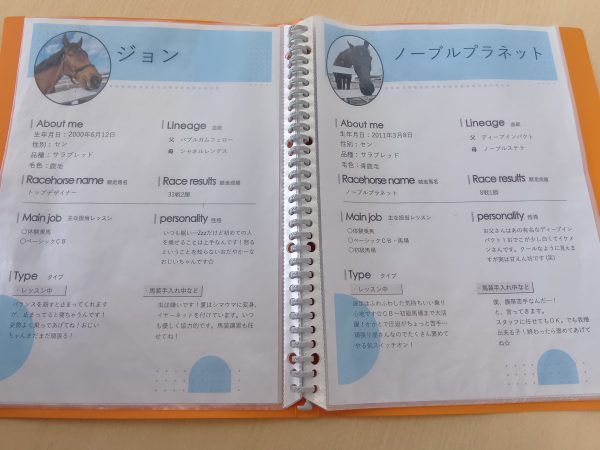 ジョン
About me
生年月日：2000年6月12日
性別：セン
品種：サラブレッド
毛色：鹿毛
Lineage 血統
父 バブルガムフェロー
母 シャネルレングス
Racehorse name 競走馬名
トップデザイナー
Race results 競走成績
33戦2勝
Main job 主な担当レッスン
〇体験乗馬
〇ベーシックCB
personality 性格
いつも眠い…Zzzだけど初めての人
を乗せることは上手なんです！怒る
ということを知らないおだやか〜な
おじいちゃん☆
Type タイプ
・レッスン中
バランスを崩すと止まってくれます
が、止まってると寝ちゃうんです！
姿勢よく乗ってあげてね！おじい
ちゃんまだまだ頑張る！
・馬装手入れ中など
虫は嫌いです！夏はシマウマに変身。
イヤーネットを付けています。いつ
も優しく協力的です。馬装調教も任
せてね！
ノーブルプラネット
About me
生年月日：2011年3月8日
性別：セン
品種：サラブレッド
毛色：青鹿毛
Lineage 血統
父 ディープインパクト
母 ノーブルステラ
Racehorse name 競走馬名
ノーブルプラネット
Race results 競走成績
8戦1勝
Main job 主な担当レッスン
〇体験乗馬
〇ベーシックCB・馬場
〇初級馬場
personality 性格
お父さんはあの有名なディープイン
パクト！おでこが少し白くてイケメ
ンさんです。クールなように見えま
すが実は甘えん坊です(笑)
Type タイプ
・レッスン中
反動はふわふわした気持ちいい乗り
心地です☆CB〜初級馬場まで大活
躍！かかとで圧迫がちょっと苦手…
頑張り屋さんなのでたくさん褒めて
やる気スイッチオン！
・馬装手入れ中など
僕、腹帯苦手なんだー！
と、言ってきます。
スタッフに任せてもOK。でも我慢
出来る子！終わったら褒めてあげて
ね☆